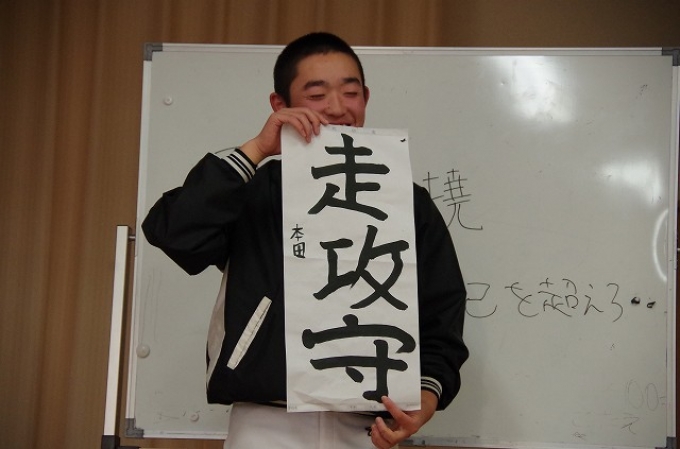 走攻守
本田
己を超えろ